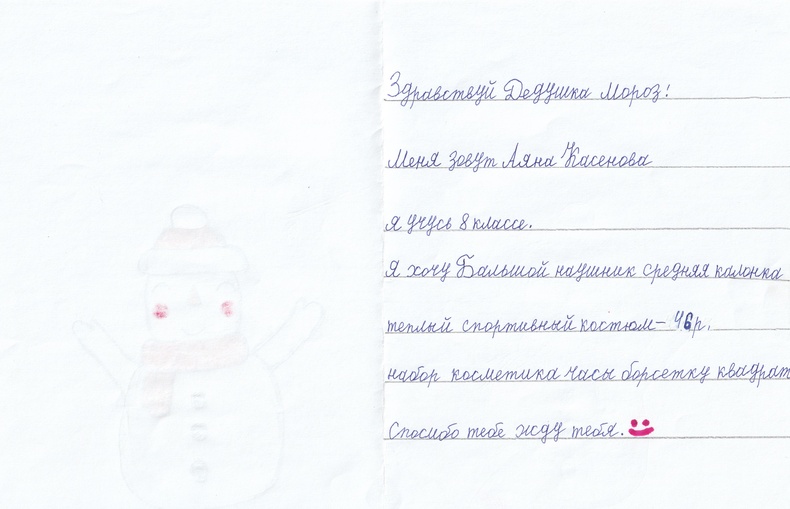 Здравствуй Дедушка Мороз!
Меня зовут Аяна Касенова
я учусь 8 классе.
Я хочу Бальшой наушник средняя калонка
теплый спортивный костюм- 46р.
набор косметика часы борсетку квадрат
Спосибо тебе жду тебя.